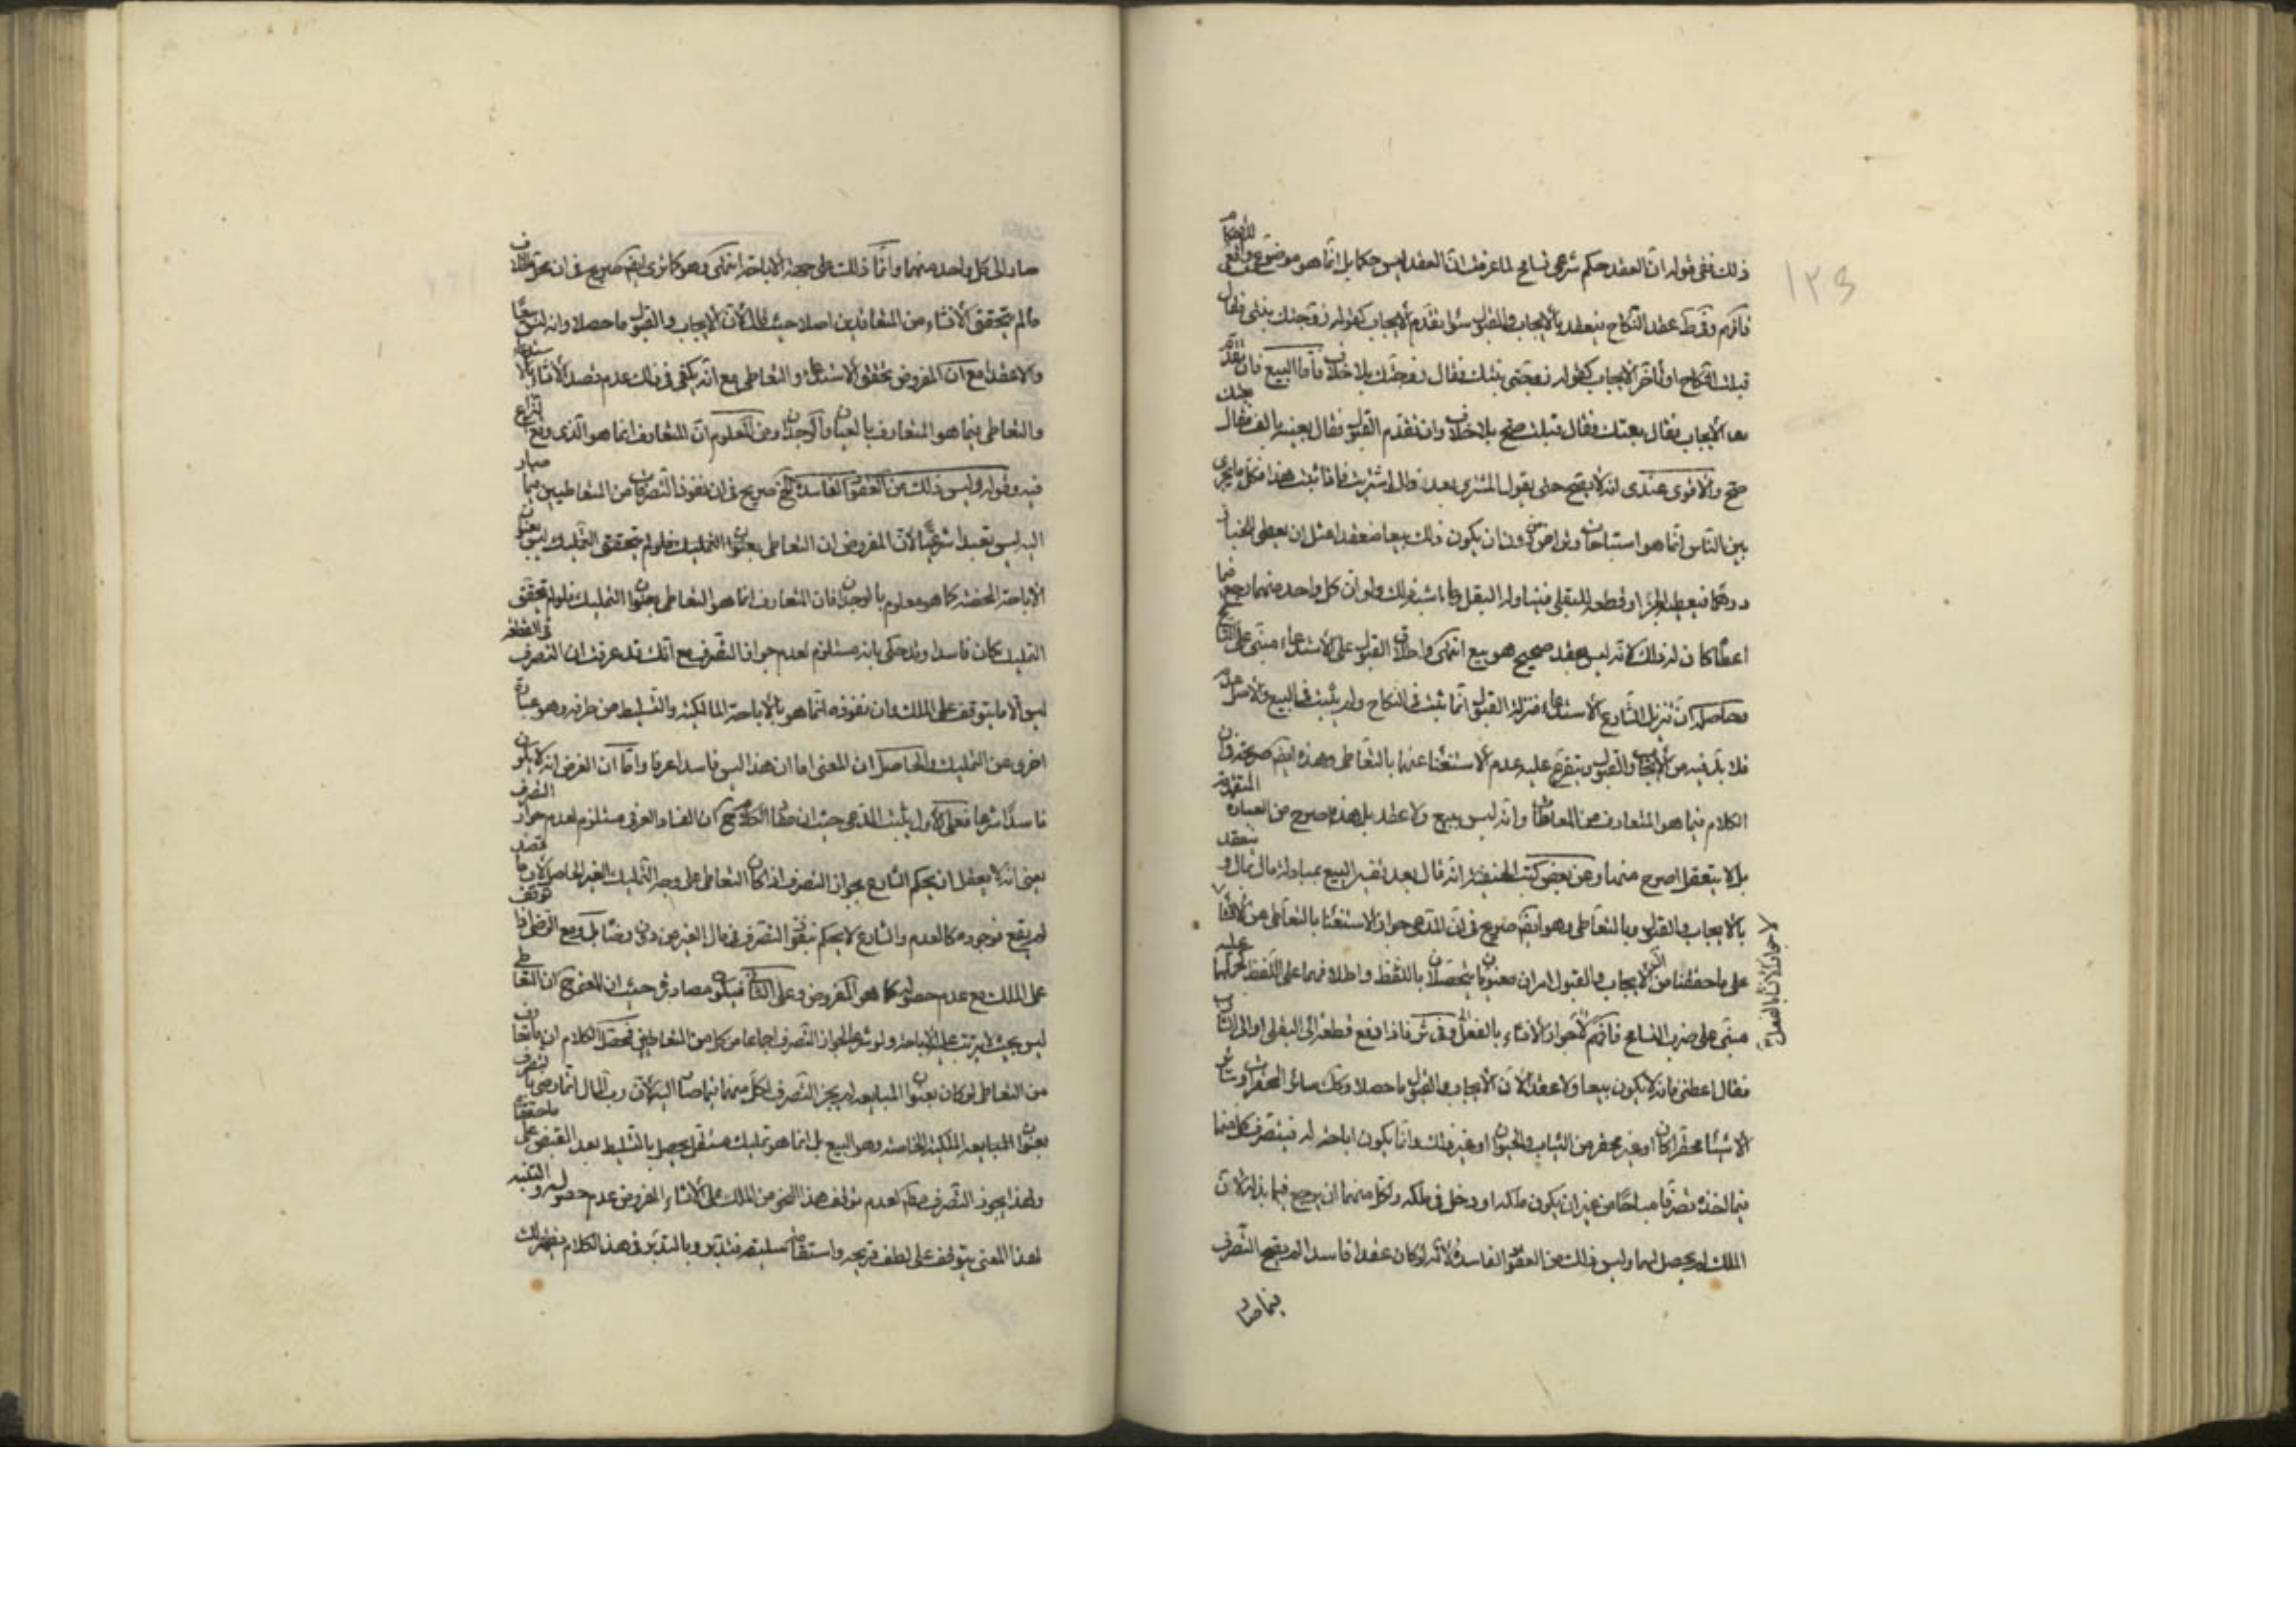 ذلك ففى قوله ان العقد حكم شرعى تسامح لما عرفت ان العقد ليس حكما بل انما هو موضوع واقع للأحكام
فافهم وفى ط عقد النكاح ينعقد بالايجاب والقبول سوا تقدم الايجاب كقوله زوجتك بنتى فقال
قبلت النكاح او تأخر الايجاب كقوله زوجنى بنتك فقال زوجتك بلا خلاف فأما البيع فان تقدم
معه الايجاب فقال بعتك فقال قبلت صح بلا خلاف وان تقدم القبول فقال بعنيه بالف فقال بعتك
صح والاقوى عندى انه لا يصح حتى يقول المشترى بعد ذلك اشتريت فاذا ثبت هذا فكل ما يجرى
بين الناس انما هو استباحات وتراض دون ان يكون ذلك بيعا منعقدا مثل ان يعطى للخباز
درهما فيعطيه الخبز او قطعة للبقلى فيناوله البقل وما اشبه ذلك ولو ان كل واحد منهما يرجع فيما
اعطاه كان له ذلك لانه ليس بعقد صحيح هو بيع انتهى واطلاق القبول على الاستدعاء مبنى على التسامح
وحاصله ان تنزيل الشارع الاستدعاء منزلة القبول انما ثبت فى النكاح ولم يثبت فى البيع والاصل عدمه
فلا بد فيه من الايجاب والقبول ويتفرع عليه عدم الاستغنا عنهما بالتعاطى وهذه ايضا صريحة فى ان
الكلام فيما هو المتعارف من المعاطاة وانه ليس ببيع ولا عقد بل هذه اصرح من العبارة المتقدمة
بل لا يتعقل اصرح منها وعن بعض كتب الحنفية انه قال بعد تفسير البيع بمبادلة مال بمال وينعقد
بالايجاب والقبول وبالتعاطى وهو ايضا صريح فى ان المدعى جواز الاستغنا بالتعاطى عن الانشا
لا جواز الانشا بالفعل
على ما حققنا من ان الايجاب والقبول امران معنويان يتحصلان باللفظ واطلاقهما على اللفظ
مبنى على ضرب من التسامح فافهم لجواز الانشاء بالفعل وفى ئر فاذا دفع قطعة الى البقلى او الى الشارب
فقال اعطنى فانه لا يكون بيعا ولا عقدا لان الايجاب والقبول ما حصلا وكذلك سائر المحقرات وسائر
الاشيا محقرا كان او غير محقر من الثياب والحيوان او غير ذلك وانما يكون اباحة له فيتصرف كل منهما
فيما اخذه تصرفا مباحا من غير ان يكون ملكه او دخل فى ملكه ولكل منهما ان يرجع فيما بذله لان
الملك لم يحصل لهما وليس ذلك من العقود الفاسدة لانه لو كان عقدا فاسدا لم يصح التصرف
فيما صار
صار الى كل واحد منهما وانما ذلك على جهة الاباحة انتهى وهو كما ترى ايضا صريح فى ان
ما لم يتحقق الانشاء من المتعاقدين اصلا حيث قال لان الايجاب والقبول ما حصلا وانه ليس بيعا
ولا عقدا مع ان المفروض تحقق الاستدعاء والتعاطى مع انه يكفى فى ذلك عدم قصد الانشاء
والتعاطى فيما هو المتعارف بالعيان والوجدان ومن المعلوم ان المتعارف انما هو الذى وقع النزاع
فيه وقوله وليس ذلك من العقود الفاسدة الخ صريح فى ان نفوذ التصرفات من المتعاطيين فيما صار
اليه ليس تعبدا شرعيا لان المفروض ان التعاطى بعنوان التمليك فلو لم يتحقق التمليك ليس بعنوان
الاباحة المحضة كما هو معلوم بالوجدان فان المتعارف انما هو التعاطى بعنوان التمليك فلو لم يتحقق
التمليك كان فاسدا وقد حكى بانه مستلزم لعدم جواز التصرف مع انك قد عرفت ان التصرف
ليس الا ما يتوقف على الملك وان نفوذه انما هو بالاباحة المالكية والتسليط من طرفه وهو عبارة
اخرى عن التمليك والحاصل ان المعنى اما ان هذا ليس فاسدا عرفا واما ان الغرض انه لا يكون
فاسدا شرعا فعلى الاول يثبت المدعى حيث ان الفساد العرفى مستلزم لعدم جواز التصرف
بمعنى انه لا يعقل ان يحكم الشارع بجواز التصرف اذا كان التعاطى على وجه التمليك الغير الحاصل لان ما قصد
لم يقع فوجوده كالعدم والشارع لا يحكم بنفوذ التصرف فى مال الغير من دون رضاه بل ومع الرضا اذا توقف
على الملك مع عدم حصوله كما هو المفروض وعلى الثانى فيكون مصادرة حيث ان المعنى ح ان التعاطى
ليس بحيث لا يترتب عليه الاباحة ولو شرعا لجواز التصرف اجماعا من كل من المتعاطيين فمحصل الكلام ان ما تعارف
من التعاطى لو كان بعنوان المبايعة لم يجز التصرف لكل منهما فيما صار اليه لان رب المال انما رضى بالتصرف
بعنوان المبايعة الملكية الخاصة وهو البيع بل انما هو تمليك مستقل يحصل بالتسليط بعد القبض على ما حققنا
ولهذا يجوز التصرف لعدم توقف هذا النحو من الملك على الانشاء المفروض عدم حصوله والتنبه
لهذا المعنى يتوقف على لطف قريحة واستقامة سليقة فتدبر وبالتدبر فى هذا الكلام يظهر لك